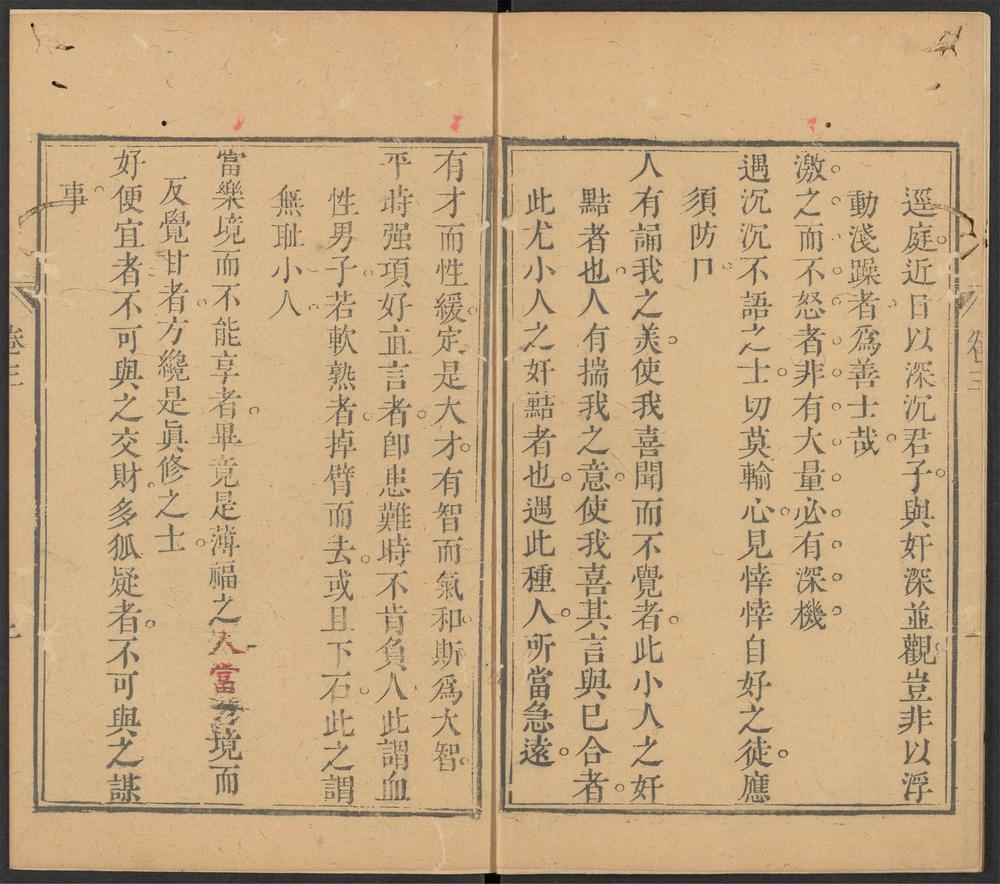 逕庭近日以深沉君子與奸深並觀豈非以浮
動淺躁者爲善士哉
激之而不怒者非有大量必有深機
遇沉沉不語之士切莫輸心見悻悻自好之徒應
須防口
人有誦我之美使我喜聞而不覺者此小人之奸
黠者也人有揣我之意使我喜其言與已合者
此尤小人之奸黠者也遇此種人所當急遠
有才而性緩定是大才有智而氣和斯爲大智
平時强項好直言者卽患難時不肯負人此謂血
性男子若軟熟者掉臂而去或且下石此之謂
無耻小人
當樂境而不能享者畢竟是薄福之人當境而
反覺甘者方纔是眞修之士
好便宜者不可與之交財多狐疑者不可與之謀
事
卷三
卷三